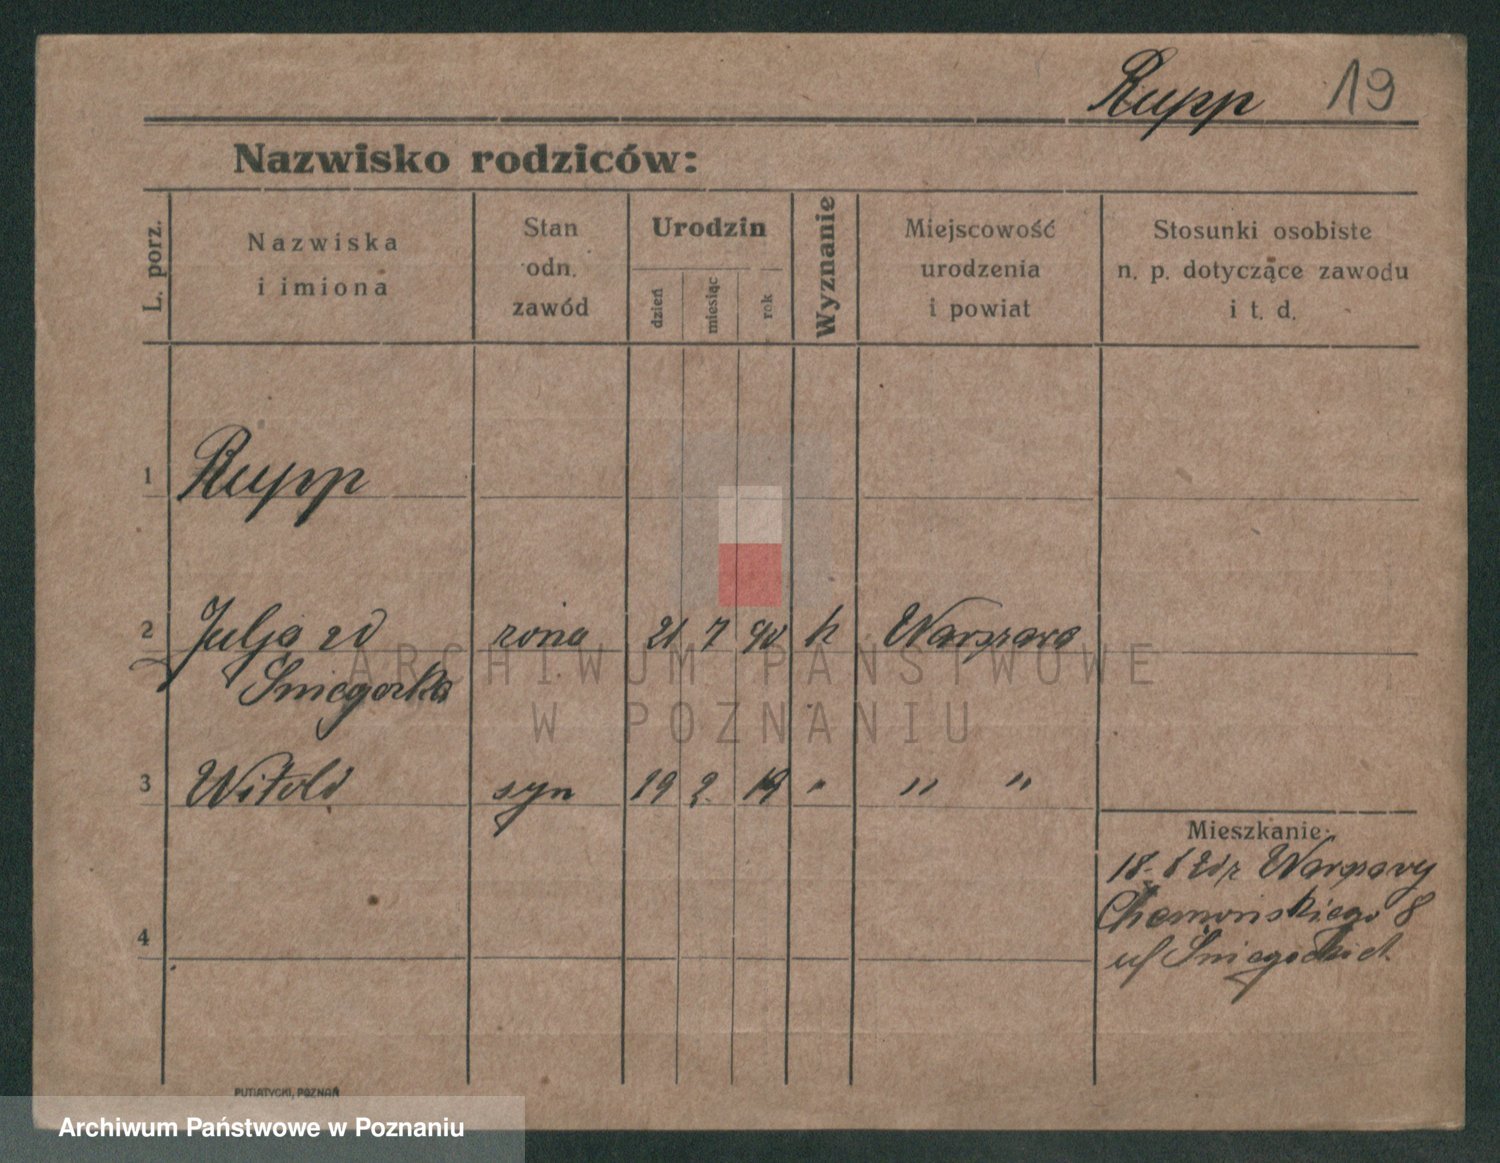 Rupp 19
Nazwisko rodziców:
L. porz.
Nazwiska
i imiona
Stan
odn.
zawód
Urodzin
dzień
miesiąc
rok
Wyznanie
Miejscowość
urodzenia
i powiat
Stosunki osobiste
n. p. dotyczące zawodu
i t. d.
1 Rupp
2 Julja zd żona 21 7 90 k Warszawa
3 Witold syn 19 2. 19 " " "
4
Mieszkanie:
18. 8 Warszawy
8
PUTIATYCKI, POZNAŃ
ARCHIWUM PAŃSTWOWE
W POZNANIU
Archiwum Państwowe w Poznaniu